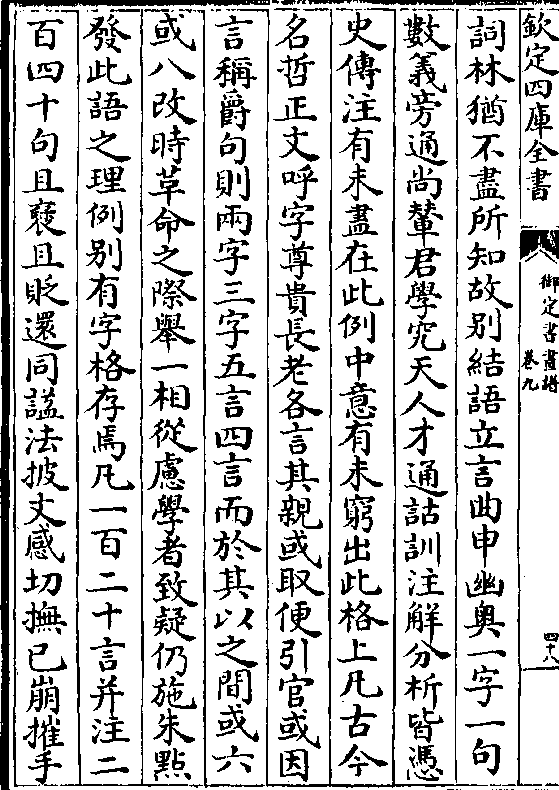 欽定四庫全書
御定書畫譜
卷九
四十八
詞林猶不盡所知故别結語立言曲申幽奥一字一句
數義旁通尚輦君學究天人才通詁訓注解分析皆憑
史傳注有未盡在此例中意有未窮出此格上凡古今
名哲正文呼字尊貴長老各言其親或取便引官或因
言稱爵句則兩字三字五言四言而於其以之間或六
或八改時革命之際舉一相從慮學者致疑仍施朱點
發此語之理例别有字格存焉凡一百二十言并注二
百四十句且襃且貶還同諡法披文感切撫已崩摧手